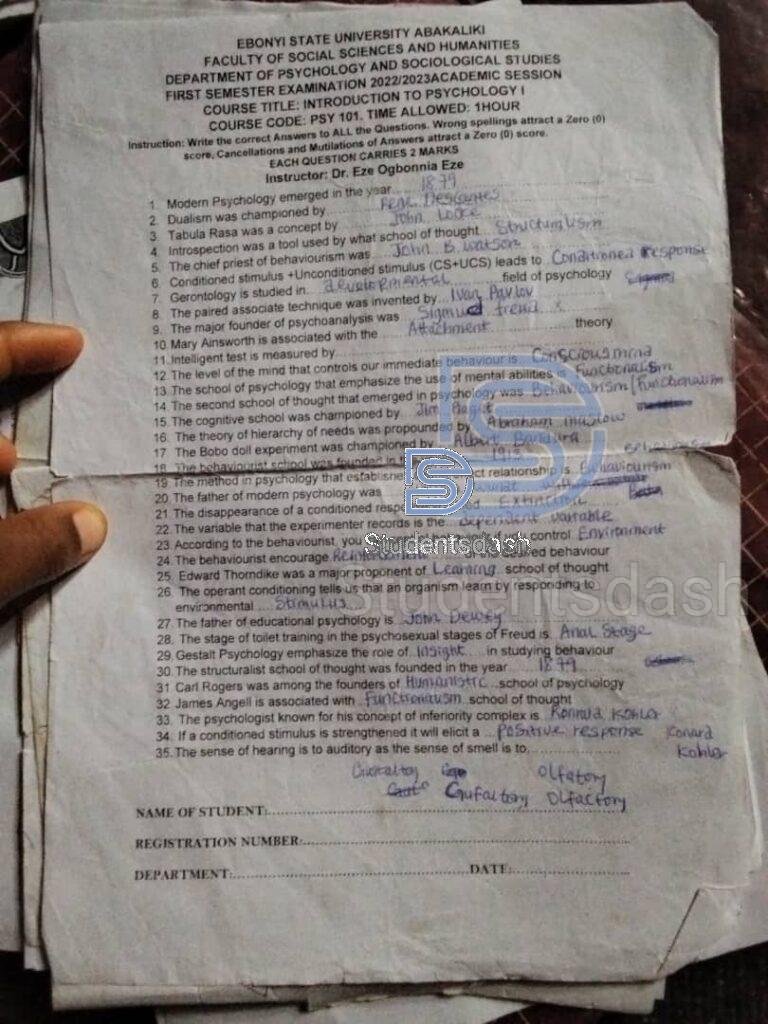 EBONYI STATE UNIVERSITY ABAKALIKI
FACULTY OF SOCIAL SCIENCES AND HUMANITIES
DEPARTMENT OF PSYCHOLOGY AND SOCIOLOGICAL STUDIES
FIRST SEMESTER EXAMINATION 2022/2023ACADEMIC SESSION
COURSE TITLE: INTRODUCTION TO PSYCHOLOGY I
COURSE CODE: PSY 101. TIME ALLOWED: 1HOUR
Instruction: Write the correct Answers to ALL the Questions. Wrong spellings attract a Zero (0)
score, Cancellations and Mutilations of Answers attract a Zero (0) score.
EACH QUESTION CARRIES 2 MARKS
Instructor: Dr. Eze Ogbonnia Eze
1 Modern Psychology emerged in the year 1879
2. Dualism was championed by Rene Descartes
3. Tabula Rasa was a concept by John Locke
4. Introspection was a tool used by what school of thought Structuralism
5. The chief priest of behaviourism was John B. Watson
6 Conditioned stimulus +Unconditioned stimulus (CS+UCS) leads to Conditioned response
7. Gerontology is studied in developmental field of psychology
8. The paired associate technique was invented by Ivan Pavlov
9. The major founder of psychoanalysis was Sigmud freud
10. Mary Ainsworth is associated with the Attachment theory
11. Intelligent test is measured by
12. The level of the mind that controls our immediate behaviour is Conscious mind
13. The school of psychology that emphasize the use of mental abilities is Functionalism
14. The second school of thought that emerged in psychology was Behaviourism/Functionalism
15. The cognitive school was championed by Jim Piaget
16. The theory of hierarchy of needs was propounded by Abraham maslow
17 The Bobo doll experiment was championed by Albert Bandura
18. The behaviourist school was founded in 1913
19 The method in psychology that establishes relationship is Behaviourism
20. The father of modern psychology was
21. The disappearance of a conditioned Extinction
22. The variable that the experimenter records is the dependent variable
23. According to the behaviourist, you control Environment
24. The behaviourist encourage behaviour
25. Edward Thorndike was a major proponent of Learning school of thought
26. The operant conditioning tells us that an organism learn by responding to
environmental Stimulus
27. The father of educational psychology is John Dewey
28. The stage of toilet training in the psychosexual stages of Freud is Anal Stage
29. Gestalt Psychology emphasize the role of Insight in studying behaviour
30. The structuralist school of thought was founded in the year 1879
31 Carl Rogers was among the founders of Humanistic school of psychology
32 James Angell is associated with Functionalism school of thought
33. The psychologist known for his concept of inferiority complex is Konrald Kohler
34. If a conditioned stimulus is strengthened it will elicit a Positive response Konard
35. The sense of hearing is to auditory as the sense of smell is to Kohler
Olfatory
Gufaltory Olfactory
NAME OF STUDENT:
REGISTRATION NUMBER:
DEPARTMENT: DATE:
Studentsdash
Studentsdash